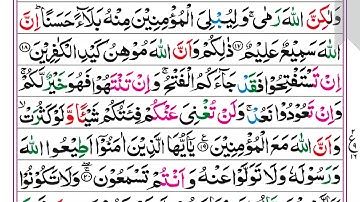 وَلٰكِنَّ اللّٰهَ رَمٰىۚ وَلِیُبْلِیَ الْمُؤْمِنِیْنَ مِنْهُ بَلَآءً حَسَنًاؕ اِنَّ
اللّٰهَ سَمِیْعٌ عَلِیْمٌ ﴿۱۷﴾ ذٰلِكُمْ وَاَنَّ اللّٰهَ مُوْهِنُ كَیْدِ الْكٰفِرِیْنَ ﴿۱۸﴾
اِنْ تَسْتَفْتِحُوْا فَقَدْ جَآءَكُمُ الْفَتْحُۚ وَاِنْ تَنْتَهُوْا فَهُوَ خَیْرٌ لَّكُمْۚ
وَاِنْ تَعُوْدُوْا نَعُدْۚ وَلَنْ تُغْنِیَ عَنْكُمْ فِئَتُكُمْ شَیْـًٔا وَّلَوْ كَثُرَتْۙ
وَاَنَّ اللّٰهَ مَعَ الْمُؤْمِنِیْنَ ﴿۱۹﴾ یٰۤاَیُّهَا الَّذِیْنَ اٰمَنُوْۤا اَطِیْعُوا اللّٰهَ
وَرَسُوْلَهٗ وَلَا تَوَلَّوْا عَنْهُ وَاَنْتُمْ تَسْمَعُوْنَ ﴿۲۰﴾ وَلَا تَكُوْنُوْا